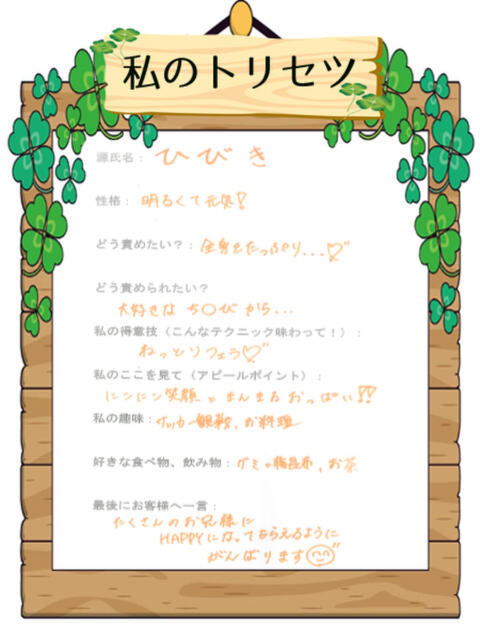 私のトリセツ
源氏名： ひびき
性格： 明るくて元気！
どう責めたい？： 全身をたっぷり...♡
どう責められたい？
大好きな ち〇びから...
私の得意技（こんなテクニック味わって！）：
ねっとりフェラ♡
私のここを見て（アピールポイント）：
笑顔 まんまるおっぱい!!
私の趣味： サッカー観戦、お料理
好きな食べ物、飲み物： グミ 梅昆布、お茶
最後にお客様へ一言：
たくさんのお兄様に
HAPPYになってもらえるように
がんばります